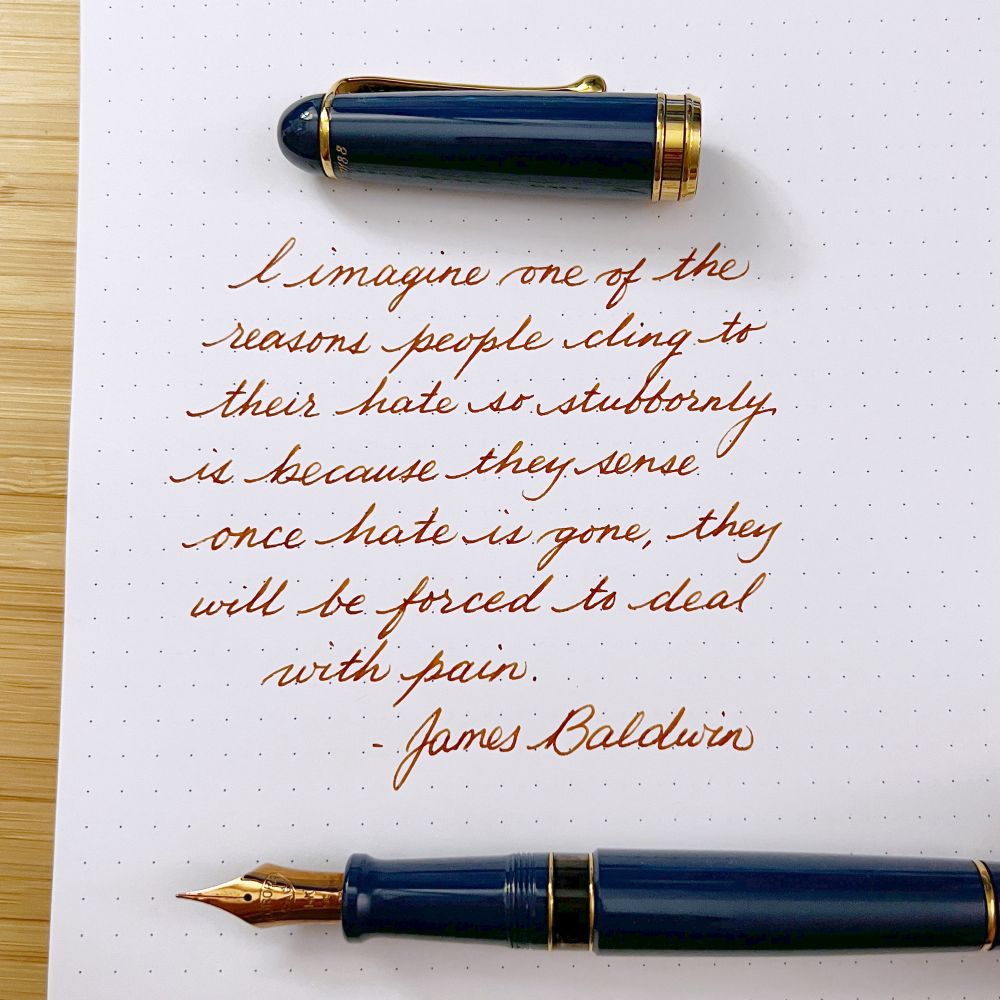 I imagine one of the
reasons people cling to
their hate so stubbornly
is because they sense
once hate is gone, they
will be forced to deal
with pain.
- James Baldwin